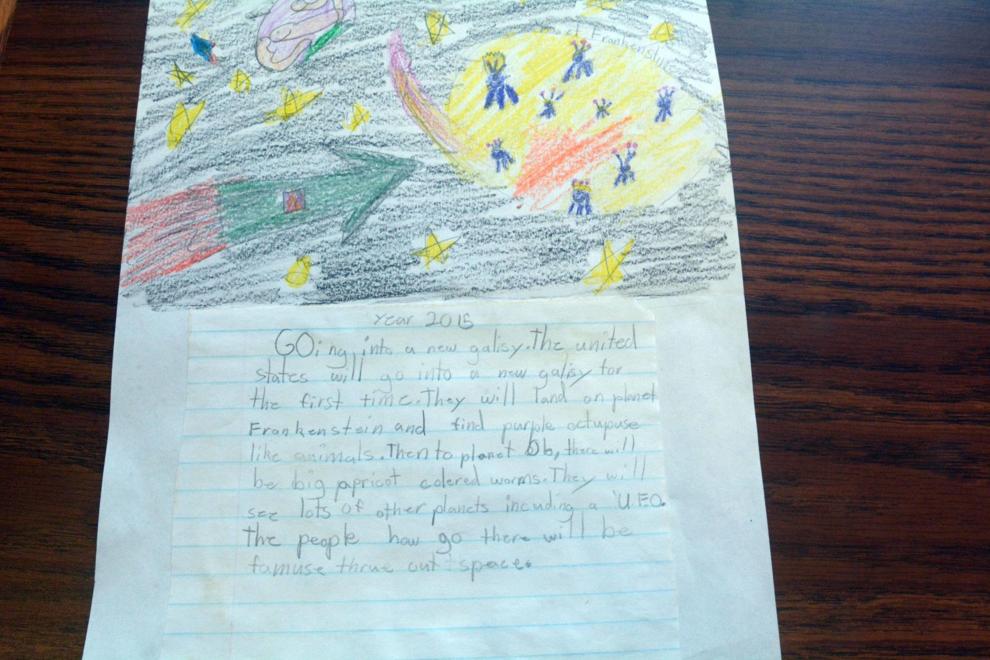 Frankenstein
Year 2015
GOing into a new galisy. The united
states will go into a new galisy for
the first time. They will land on planet
Frankenstein and find purple octupuse
like animals. Then to planet Ob, there will
be big apricot colered worms. They will
see lots of other planets incuding a U.F.O.
the people how go there will be
famuse thrue out space.